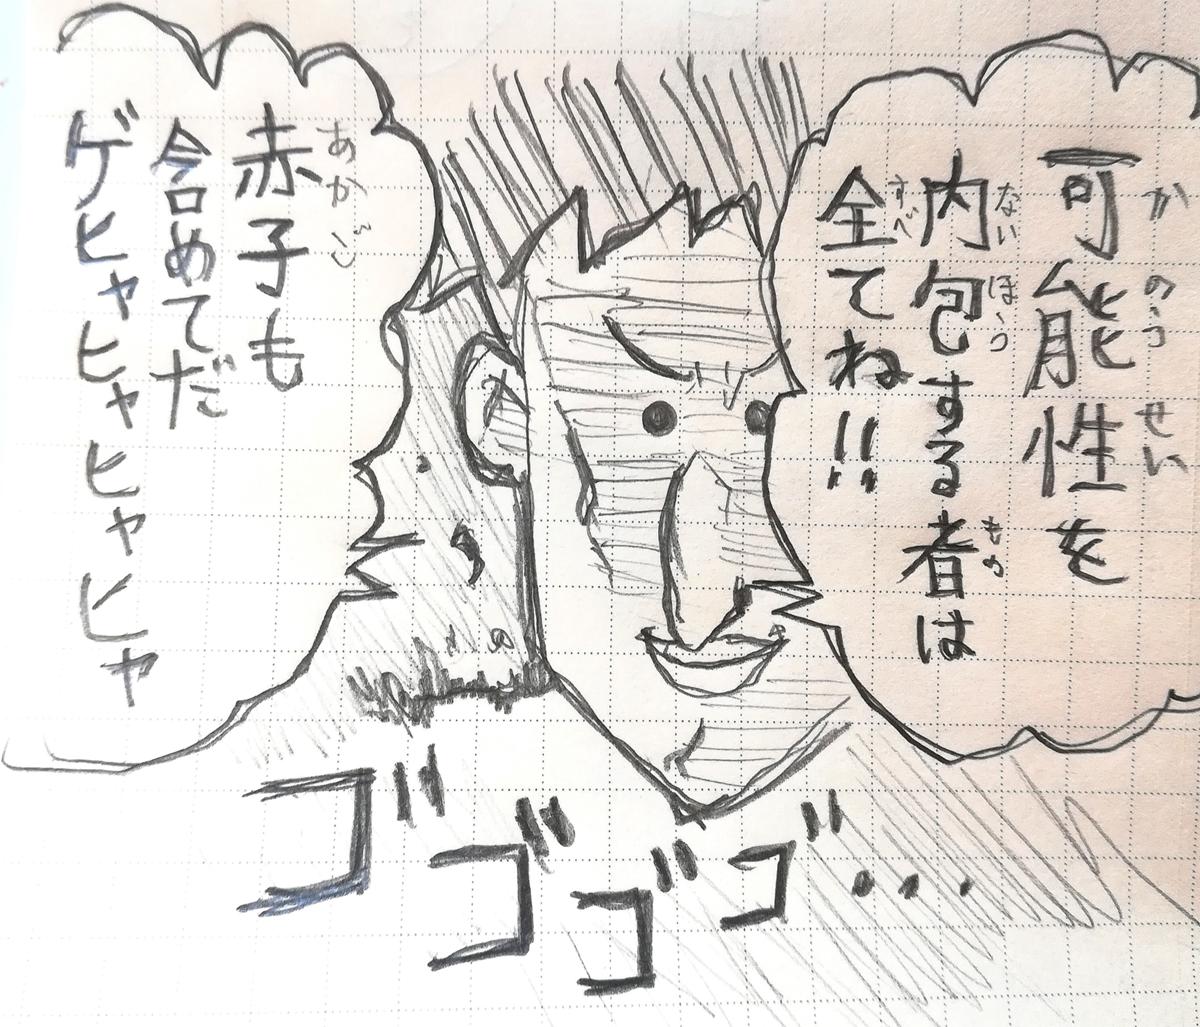 可能性を
内包する者は
全てね!!
赤子も
含めてだ
ゲヒャヒャヒャヒャ
ゴゴゴゴ...
かのうせい
ないほうもの
すべ
あかご